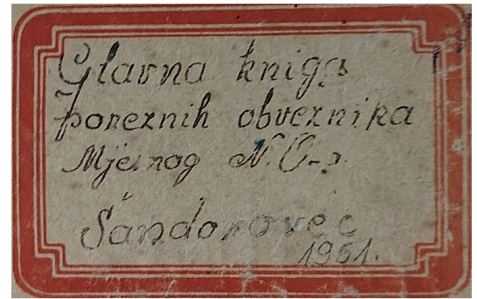 Glavna knjiga
poreznih obveznika
Mjesnog N. O-a
Šandorovec
1951.